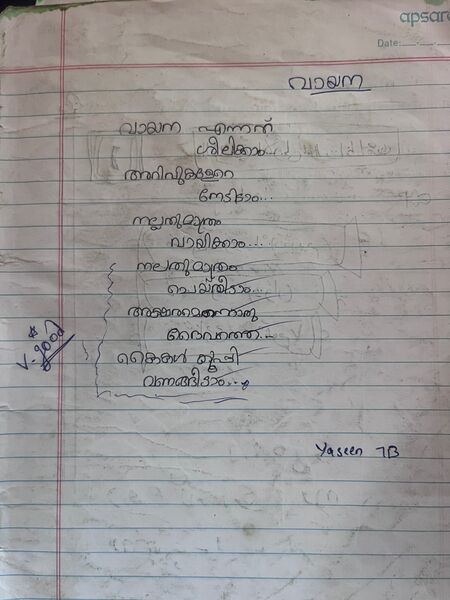 apsara
Date:
വായന
വായന എന്നത്
ശീലിക്കാം...
അറിവുകളേറെ
നേടിടാം...
നല്ലതുമാത്രം
വായിക്കാം...
നല്ലതുമാത്രം
ചെയ്തിടാം...
അക്ഷരമെന്നൊരു
ദൈവത്തെ...
കൈകൾ കൂപ്പി
വണങ്ങിടാം...
V. good
Yaseen 7B